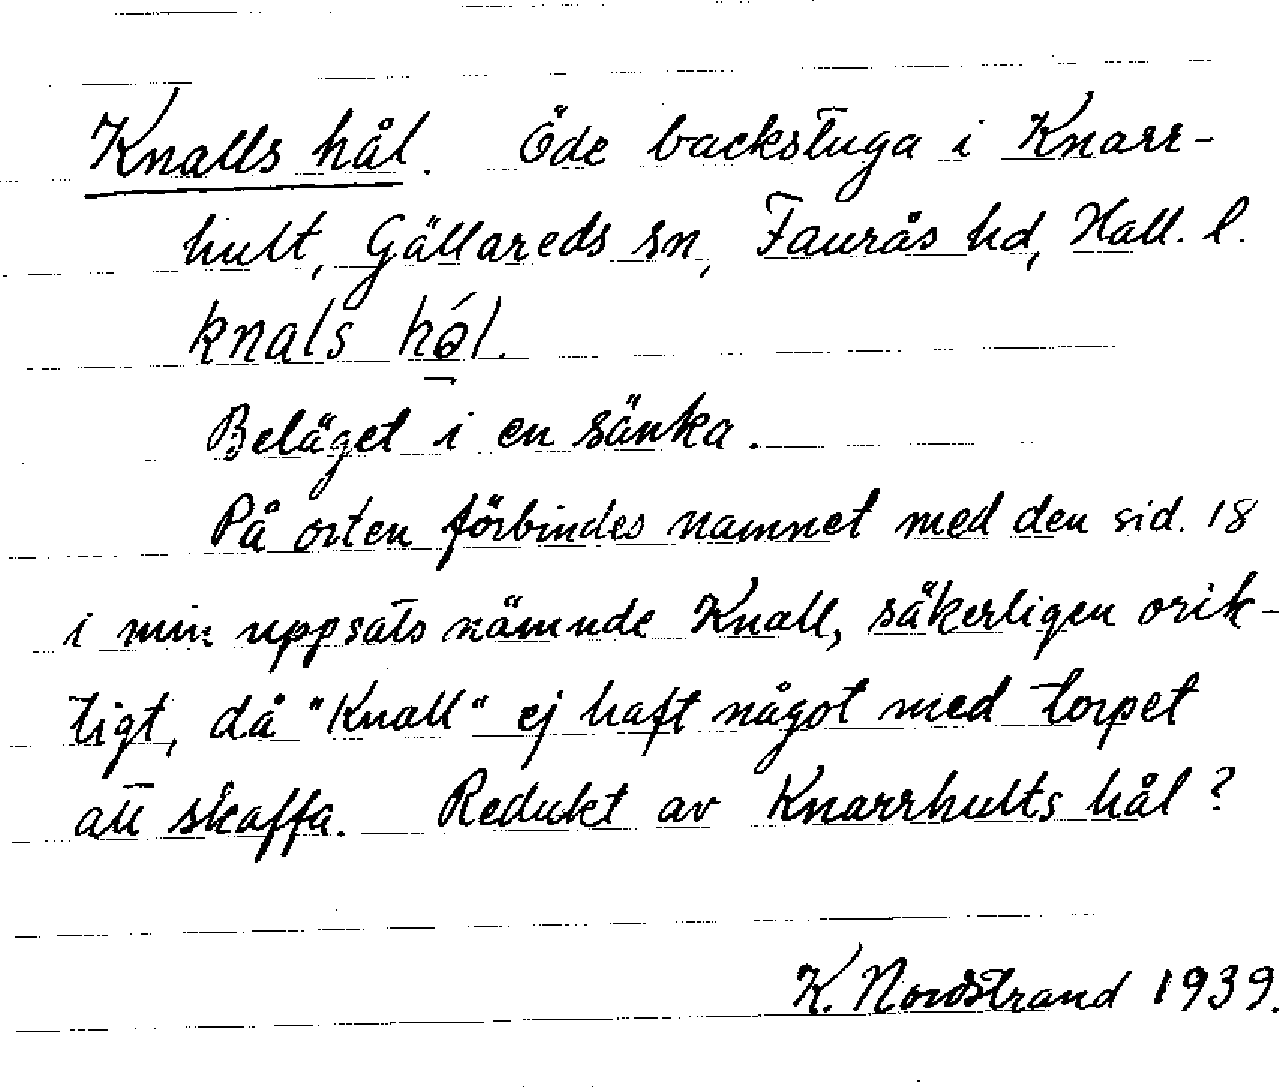 Knalls hål. Öde backstuga i Knarr-
hult, Gällareds sn, Faurås hd, Hall. l.
knals hǿl.
Beläget i en sänka.
På orten förbindes namnet med den sid. 18
i min uppsats nämnde Knall, säkerligen orik-
tigt, då "Knall" ej haft något med torpet
att skaffa. Redukt av Knarrhults hål?
K. Nordstrand 1939.